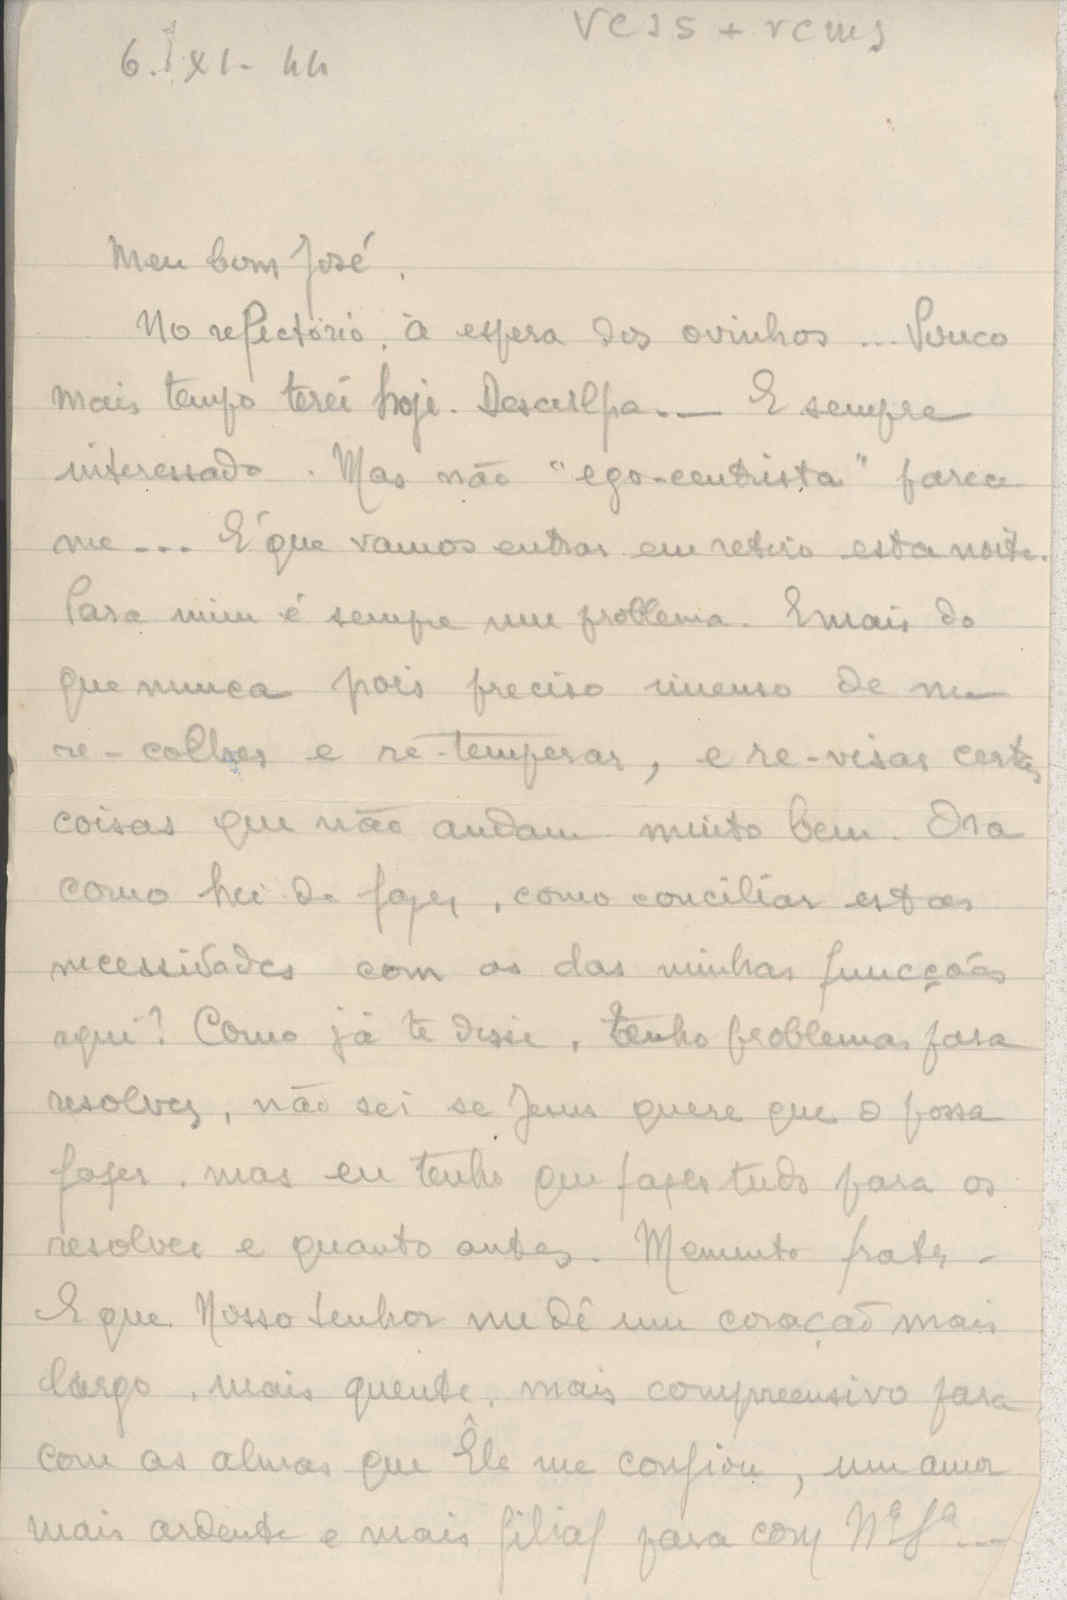 6. XI - 44
Meu bom José,
No refectório, à espera dos ovinhos ... Pouco
mais tempo terei hoje. Desculpa... E sempre
interessado. Mas não "ego-centrista" parece
me ... É que vamos entrar em retiro esta noite.
Para mim é sempre um problema. E mais do
que nunca pois preciso imenso de me
re-colher e re-temperar, e re-visar certas
coisas que não andam muito bem. Ora
como hei de fazer, como conciliar estas
necessidades com as das minhas funcções
aqui? Como já te disse, tenho problemas para
resolver, não sei se Jesus quere que o possa
fazer, mas eu tenho que fazer tudo para os
resolver e quanto antes. Memento frater -
E que Nosso Senhor me dê um coração mais
largo, mais quente, mais compreensivo para
com as almas que Êle me confiou, um amor
mais ardente e mais filial para com Nª Sª ...